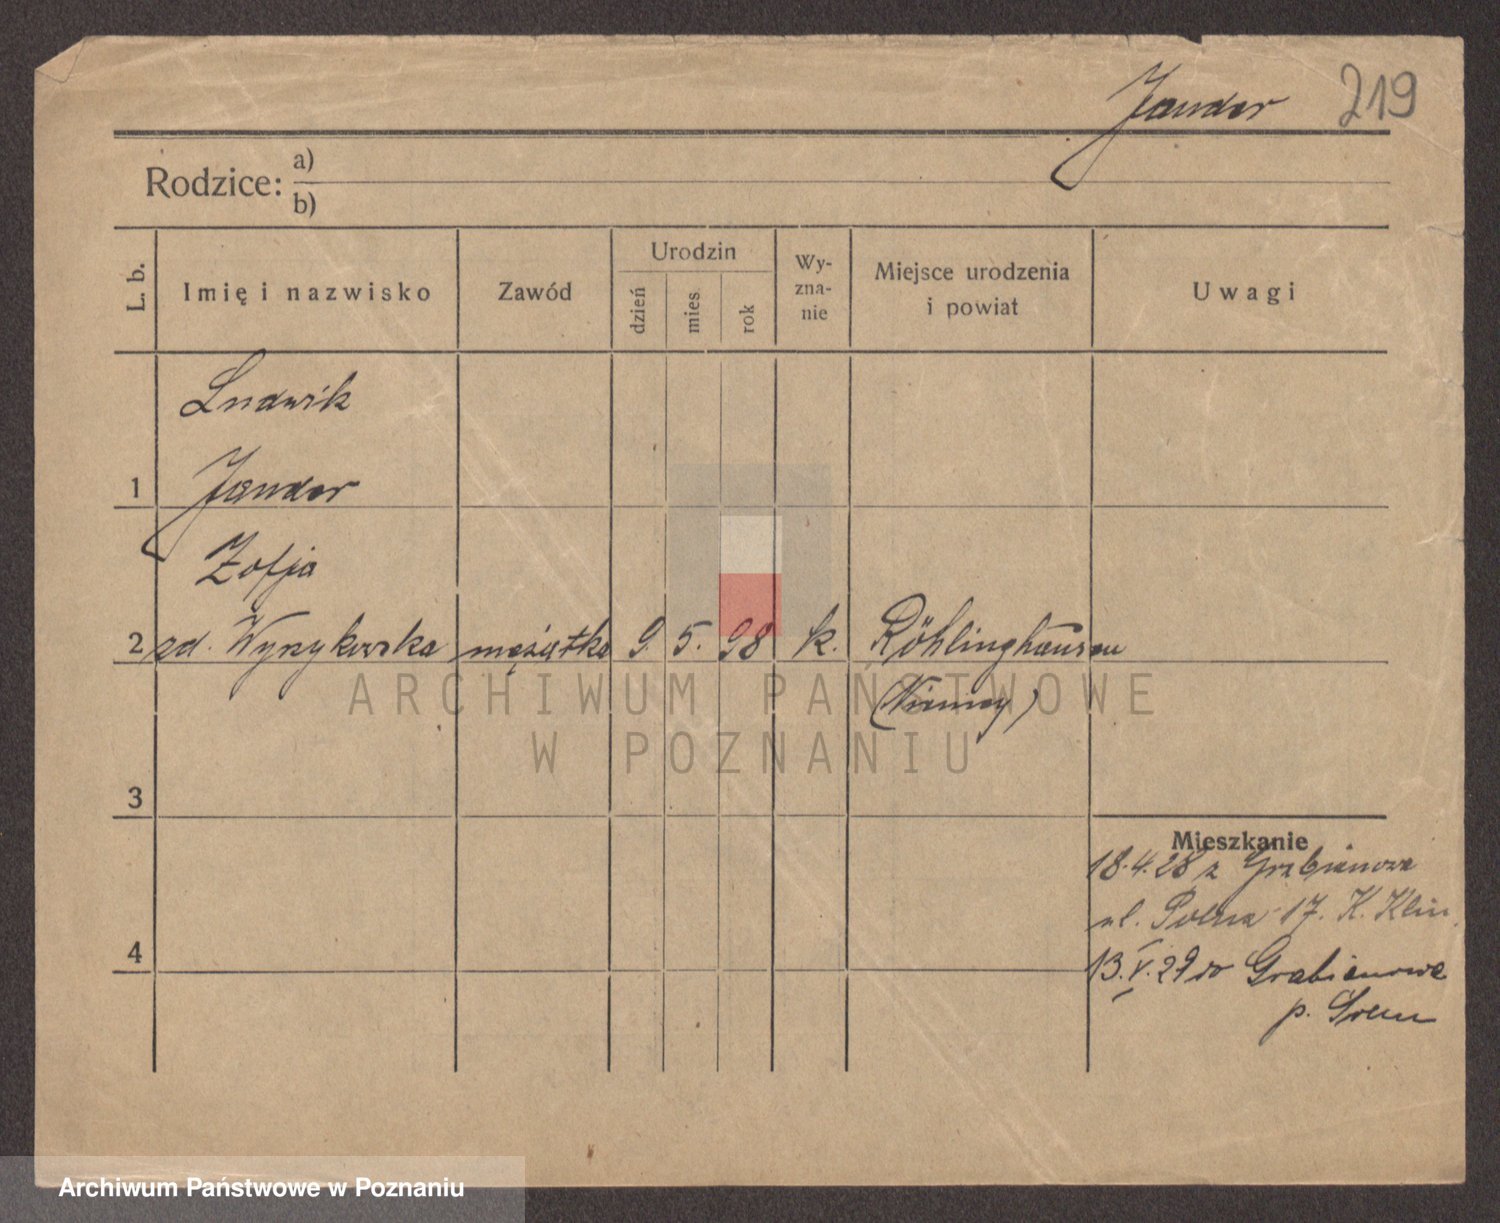 Jander 219
Rodzice: a)
b)
L. b. Imię i nazwisko Zawód Urodzin dzień mies. rok Wy-zna-nie Miejsce urodzenia i powiat Uwagi
Ludwik
1 Jander
Zofja
2 zd. Wyrzykowska mężatka 9. 5. 98 k. Röhlinghausen
(Niemcy)
ARCHIWUM PAŃSTWOWE
W POZNANIU
3
Mieszkanie
18.4.28 z Grabianowa
ul. Polna 17. K. Klin.
4
13.V.29 do Grabianowo
p. Śrem
Archiwum Państwowe w Poznaniu